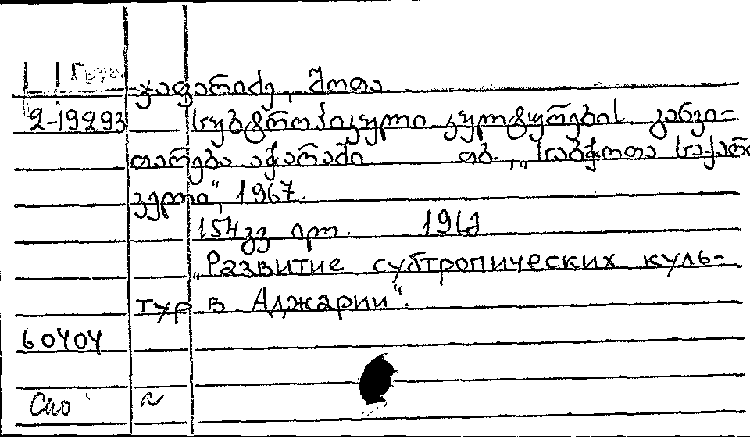 ჯაფარიძე, შოთა
2-19293 სუბტროპიკული კულტურების განვი-
თარება აჭარაში თბ., „საბჭოთა საქარ
ველო", 1967.
154 გვ. ილ. 1967
„Развитие субтропических куль-
тур в Аджарии".
60404